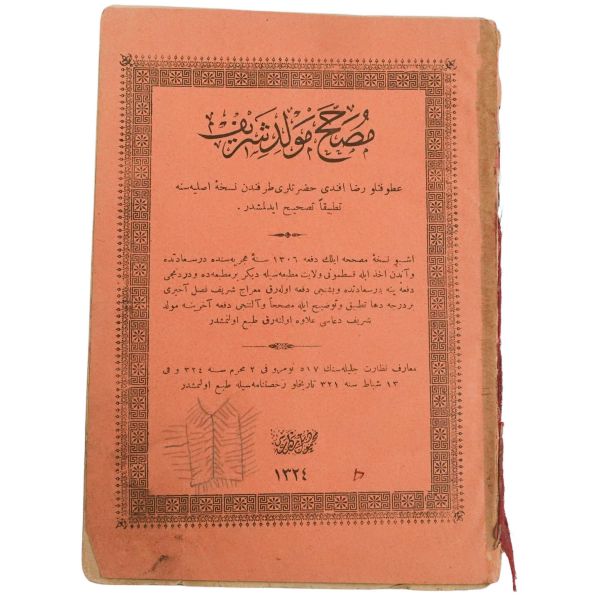 مصحح مولد شريف
عطوفتلو رضا افندی حضرتلری طرفندن نسخۀ اصلیه‌سنه
تطبیقاً تصحیح ایدلمشدر .
اشبو نسخۀ مصححه ایلك دفعه ١٣٠٦ سنۀ هجریه‌سنده درسعادتده
وآندن اخذ ایله قسطمونی ولایت مطبعه‌سیله دیکر بر مطبعه‌ده ودردنجی
دفعه ینه درسعادتده وبشنجی دفعه اوله‌رق معراج شریف فصل آخیری
بردرجه دها تطبیق وتوضیح ایله مصححاً وآلتنجی دفعه آخرینه مولد
شریف دعاسی علاوه اولنه‌رق طبع اولنمشدر
معارف نظارت جلیله‌سنك ٥١٧ نومرو و فی ٢ محرم سنه ٣٢٤ و فی
١٣ شباط سنه ٣٢١ تاریخلو رخصتنامه‌سیله طبع اولنمشدر
١٣٢٤